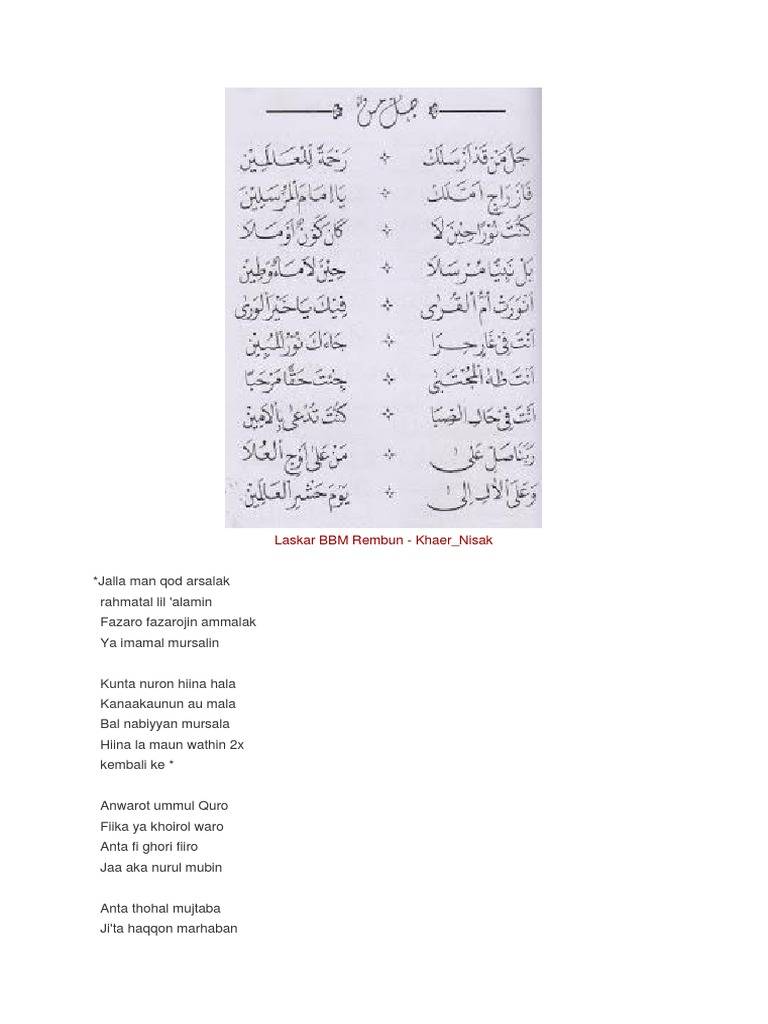 جل من
جَلَّ مَنْ قَدْ اَرْسَلَكْ ✧ رَحْمَةً لِلْعَـالَمِـيْن
فَازَ رَاجٍ اَمَّلَكْ ✧ يَا اِمَامَ الْمُرْسَلِيْنَ
كُنْتَ نُوْرًا حِيْنَ لَا ✧ كَانَ كَوْنٌ اَوْ مَـلَا
بَلْ نَبِيًّا مُـرْسَلَا ✧ حِيْنَ لَا مَـاءٌ وَطِيْن
اَنْوَرَتْ اُمُّ الْقُـرٰى ✧ فِيْكَ يَـاخَيْرَ الْوَرٰى
اَنْتَ فِيْ غَارِ حِـرَا ✧ جَاءَكَ نُوْرُ الْمُبِيْن
اَنْتَ طٰهٰ الْمُجْتَبٰى ✧ جِئْتَ حَقًّا مَرْحَبًا
اَنْتَ فِيْ حَالِ الصِّبَا ✧ كُنْتَ تُدْعٰى بِالْاَمِيْن
رَبَّنَا صَلِّ عَلٰى ✧ مَنْ عَلٰى اَوْجِ الْعُلَا
وَعَلَى الْاٰلِ اِلٰى ✧ يَوْمَ حَشْرِ الْعَالَمِيْن
Laskar BBM Rembun - Khaer_Nisak
*Jalla man qod arsalak
rahmatal lil 'alamin
Fazaro fazarojin ammalak
Ya imamal mursalin
Kunta nuron hiina hala
Kanaakaunun au mala
Bal nabiyyan mursala
Hiina la maun wathin 2x
kembali ke *
Anwarot ummul Quro
Fiika ya khoirol waro
Anta fi ghori fiiro
Jaa aka nurul mubin
Anta thohal mujtaba
Ji'ta haqqon marhaban